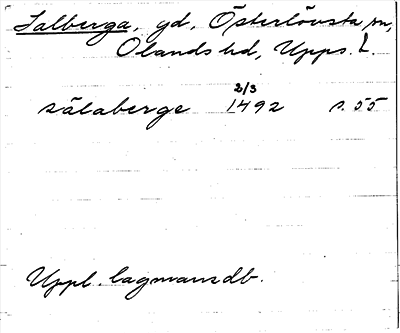 Salberga, gd, Österlövsta sn,
Olands hd, Upps. L.
2/3
sålaberge 1492 s. 55
Uppl. lagmansdb.